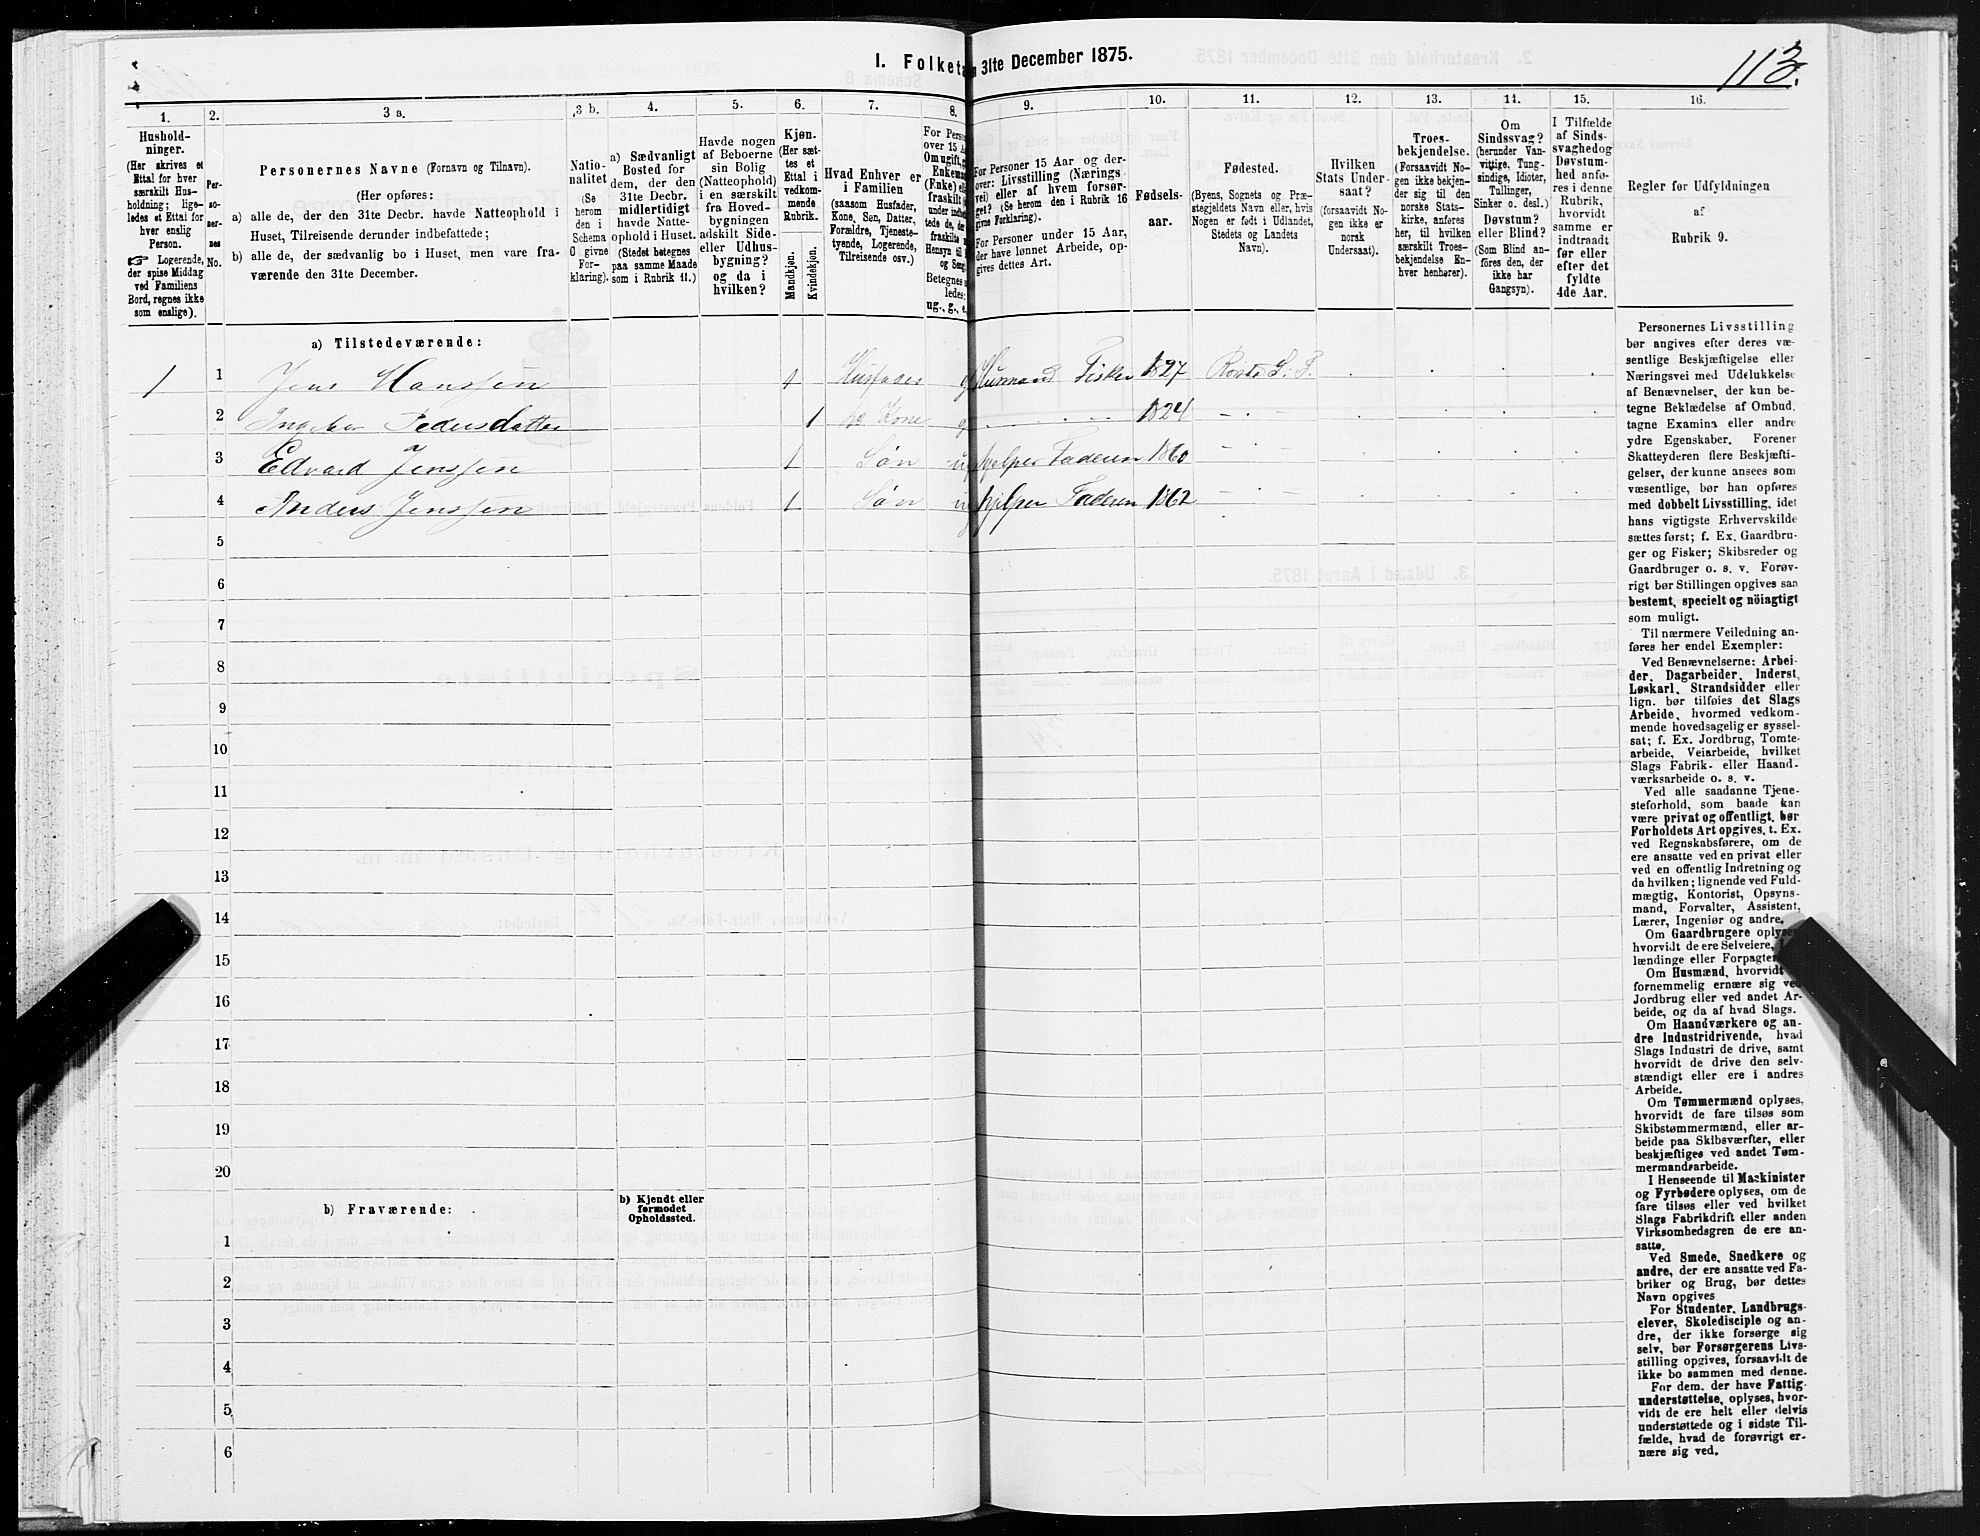 113.
I. Folketa
n 31te December 1875.
1.
2.
3 a.
3 b.
4.
5.
6.
7.
8.
9.
10.
11.
12.
13.
14.
15.
16.
Hushold-
ninger.
(Her skrives et
Ettal for hver
særskilt Hus-
holdning; lige-
ledes et Ettal for
hver enslig
Person.
☞ Logerende,
der spise Middag
ved Familiens
Bord, regnes ikke
som enslige).
Per-
so-
ner-
nes
No.
Personernes Navne (Fornavn og Tilnavn).
(Her opføres:
a) alle de, der den 31te Decbr. havde Natteophold i
Huset, Tilreisende derunder indbefattede;
b) alle de, der sædvanlig bo i Huset, men vare fra-
værende den 31te December.
Natio-
nalitet
(Se
herom
den i
Schema
O givne
For-
klaring).
a) Sædvanligt
Bosted for
dem, der den
31te Decbr.
midlertidigt
havde Natte-
ophold i Huset.
(Stedet betegnes
paa samme Maade
som i Rubrik 11.)
Havde nogen
af Beboerne
sin Bolig
(Natteophold)
i en særskilt
fra Hoved-
bygningen
adskilt Side-
eller Udhus-
bygning?
og da i
hvilken?
Kjøn.
(Her sæt-
tes et
Ettal i
vedkom-
mende
Rubrik.
Mandkjøn.
Kvindekjøn.
Hvad Enhver er
i Familien
(saasom Husfader,
Kone, Søn, Datter,
Forældre, Tjeneste-
tyende, Logerende,
Tilreisende osv.)
For Perso
over 15 A
Om ugift, g
Enkema
(Enke) el
fraskilt
under indbe
tede de, de
fraskilte
Hensyn til
og Seng
Betegnes
ledes:
ug., g., e.
For Personer 15 Aar og der-
over: Livsstilling (Nærings
vei) eller af hvem forsør-
get? (Se herom den i Rubrik 16
givne Forklaring).
For Personer under 15 Aar,
der have lønnet Arbeide, op-
gives dettes Art.
Fødsels-
aar.
Fødested.
(Byens, Sognets og Præ-
stegjeldets Navn eller, hvis
Nogen er født i Udlandet,
Stedets og Landets
Navn).
Hvilken
Stats Under-
saat?
(forsaavidt No-
gen ikke er
norsk
Undersaat).
Troes-
bekjendelse.
(Forsaavidt No-
gen ikke bekjen-
der sig til den
norske Stats-
kirke, anføres
her, til hvilken
særskilt Troes-
bekjendelse En-
hver henhører).
Om
Sindssvag?
(herunder Van-
vittige, Tung-
sindige, Idioter,
Tullinger,
Sinker o. desl.)
Døvstum?
eller Blind?
(Som Blind an-
føres den, der
ikke har
Gangsyn).
I Tilfælde
af Sinds-
svaghed og
Døvstum-
hed anfø-
res i denne
Rubrik,
hvorvidt
samme er
indtraadt
før eller
efter det
fyldte
4de Aar.
Regler for Udfyldningen
af
Rubrik 9.
a) Tilstedeværende:
1 1 Jens Hanssen 1 Husfader g Husmand Fisker 1827 Røst S. P.
2 Pedersdatter 1 Kone g 1824 — · —
3 Edvard Jenssen 1 Søn ug hjelper Faderen 1860 — · —
4 Anders Jenssen 1 Søn ug hjelper Faderen 1862 — · —
5
6
7
8
9
10
11
12
13
14
15
16
17
18
19
20
b) Fraværende:
b) Kjendt eller
formodet
Opholdssted.
1
2
3
4
5
6
Personernes Livsstilling
bør angives efter deres væ-
sentlige Beskjæftigelse eller
Næringsvei med Udelukkelse
af Benævnelser, der kun be-
tegne Beklædelse af Ombud,
tagne Examina eller andre
ydre Egenskaber. Forener
Skatteyderen flere Beskjæfti-
gelser, der kunne ansees som
væsentlige, bør han opføres
med dobbelt Livsstilling, idet
hans vigtigste Erhvervskilde
sættes først; f. Ex. Gaardbru-
ger og Fisker; Skibsreder og
Gaardbruger o. s. v. Forøv-
rigt bør Stillingen opgives saa
bestemt, specielt og nöiagtigt
som muligt.
Til nærmere Veiledning an-
føres her endel Exempler:
Ved Benævnelserne: Arbei-
der, Dagarbeider, Inderst,
Løskarl, Strandsidder eller
lign. bør tilføies det Slags
Arbeide, hvormed vedkom-
mende hovedsagelig er syssel-
sat; f. Ex. Jordbrug, Tomte-
arbeide, Veiarbeide, hvilket
Slags Fabrik- eller Haand-
værksarbeide o. s. v.
Ved alle saadanne Tjene-
steforhold, som baade kan
være privat og offentligt, bør
Forholdets Art opgives, t. Ex.
ved Regnskabsførere, om de
ere ansatte ved en privat eller
ved en offentlig Indretning og
da hvilken; lignende ved Fuld-
mægtig, Kontorist, Opsyns-
mand, Forvalter, Assistent,
Lærer, Ingeniør og andre.
Om Gaardbrugere oplyses
hvorvidt de ere Selveiere,
lændinge eller Forpagter
Om Husmænd, hvorvidt
fornemmelig ernære sig ved
Jordbrug eller ved andet Ar-
beide, og da af hvad Slags.
Om Haandværkere og an-
dre Industridrivende, hvad
Slags Industri de drive, samt
hvorvidt de drive den selv-
stændigt eller ere i andres
Arbeide.
Om Tømmermænd oplyses,
hvorvidt de fare tilsøs som
Skibstømmermænd, eller ar-
beide paa Skibsværfter, eller
beskjæftiges ved andet Tøm-
mermandsarbeide.
I Henseende til Maskinister
og Fyrbødere oplyses, om de
fare tilsøs eller ved hvilket
Slags Fabrikdrift eller anden
Virksomhedsgren de ere an-
satte.
Ved Smede, Snedkere og
andre, der ere ansatte ved Fa-
briker og Brug, bør dettes
Navn opgives
For Studenter, Landbrugs-
elever, Skoledisciple og an-
dre, der ikke forsørge sig
selv, bør Forsørgerens Livs-
stilling opgives, forsaavidt de
ikke bo sammen med denne.
For dem, der have Fattig-
understøttelse, oplyses, hvor-
vidt de ere helt eller delvis
understøttede og i sidste Til-
fælde, hvad de forøvrigt er-
nære sig ved.